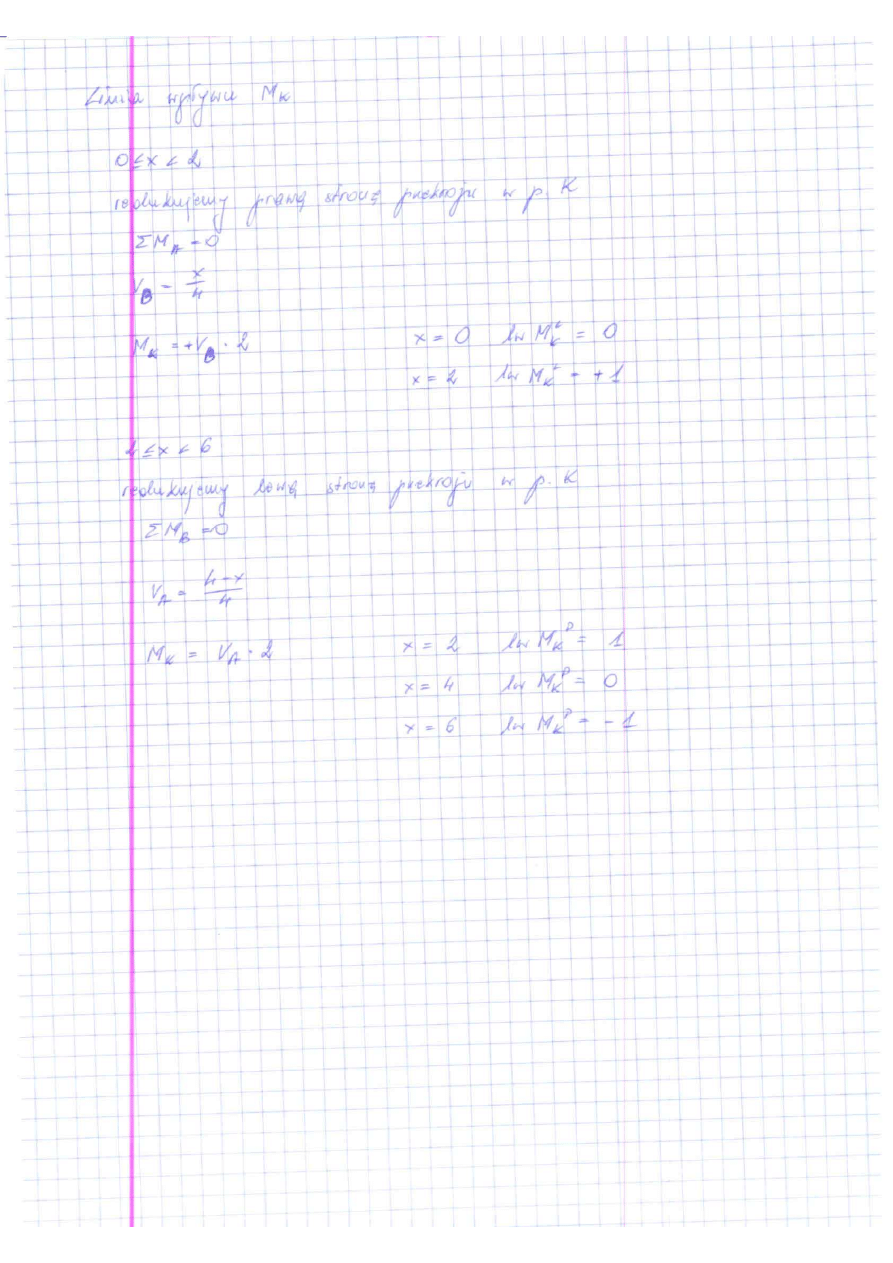 Linia wpływu Mk
0 ≤ x < 2
redukujemy prawą stronę przekroju w p. K
ΣM_A = 0
V_B = x/4
M_K = +V_B · 2 x = 0 lw M_K^L = 0
x = 2 lw M_K^L = +1
≤ x < 6
redukujemy lewą stronę przekroju w p. K
ΣM_B = 0
V_A = (4-x)/4
M_K = V_A · 2 x = 2 lw M_K^P = 1
x = 4 lw M_K^P = 0
x = 6 lw M_K^P = -1